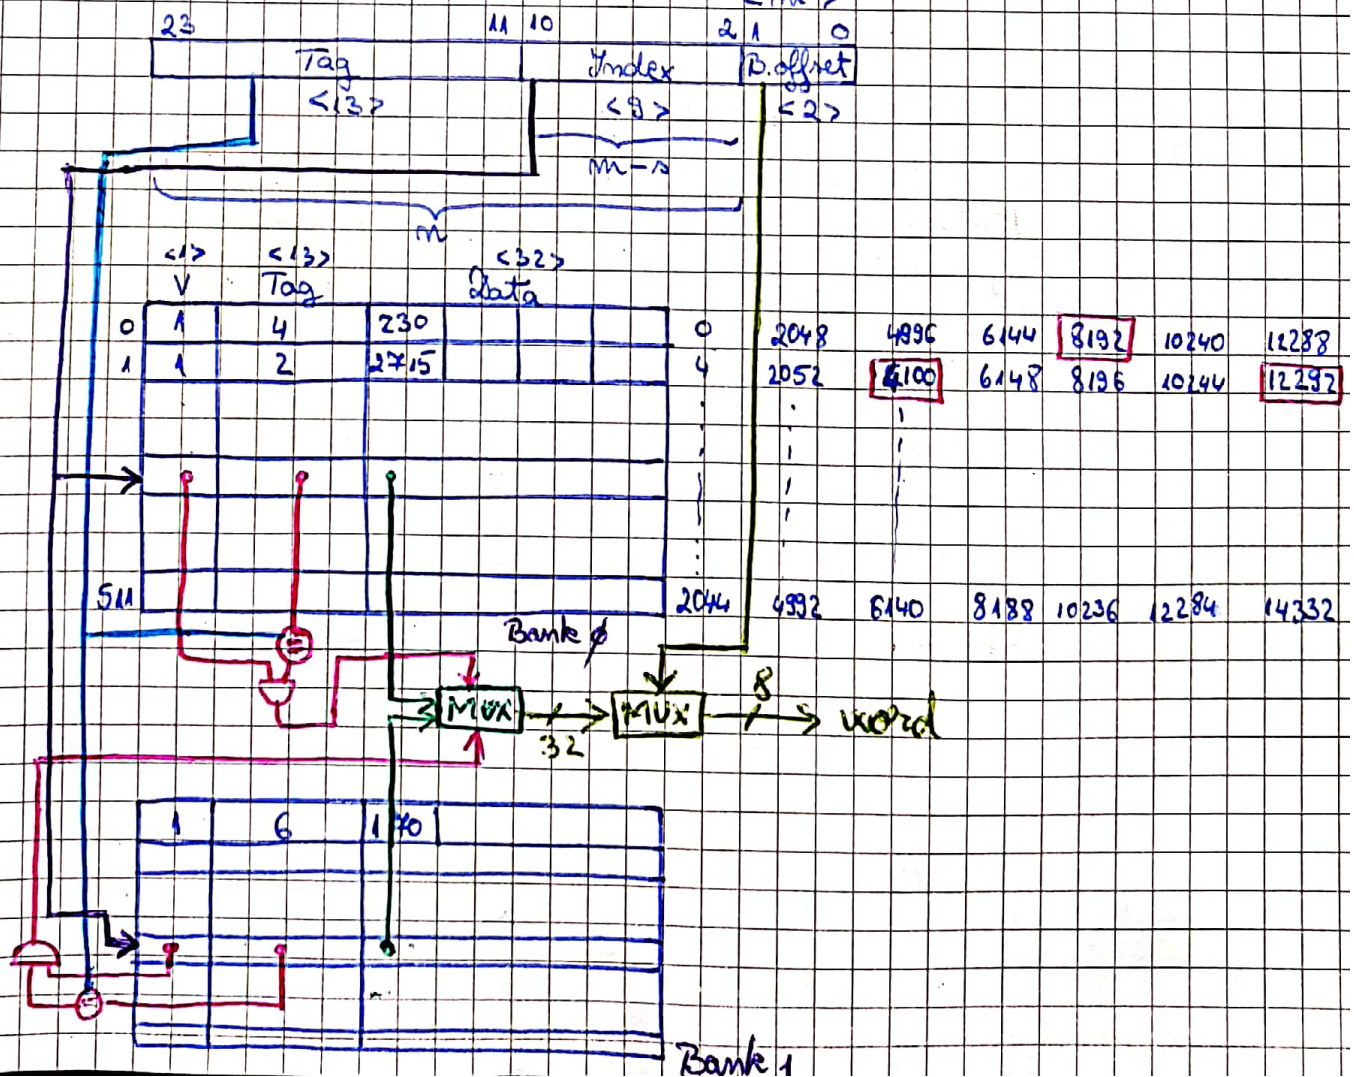 23 11 10 2 1 0
Tag Index B.offset
<13> <9> <2>
m-s
n
<1> <13> <32>
V Tag Data
0 1 4 230 0 2048 4996 6144 8192 10240 12288
1 1 2 2715 4 2052 4100 6148 8196 10244 12292
511 2044 4992 6140 8188 10236 12284 14332
Bank ϕ
=
MUX 32 MUX 8 word
1 6 170
=
Bank 1